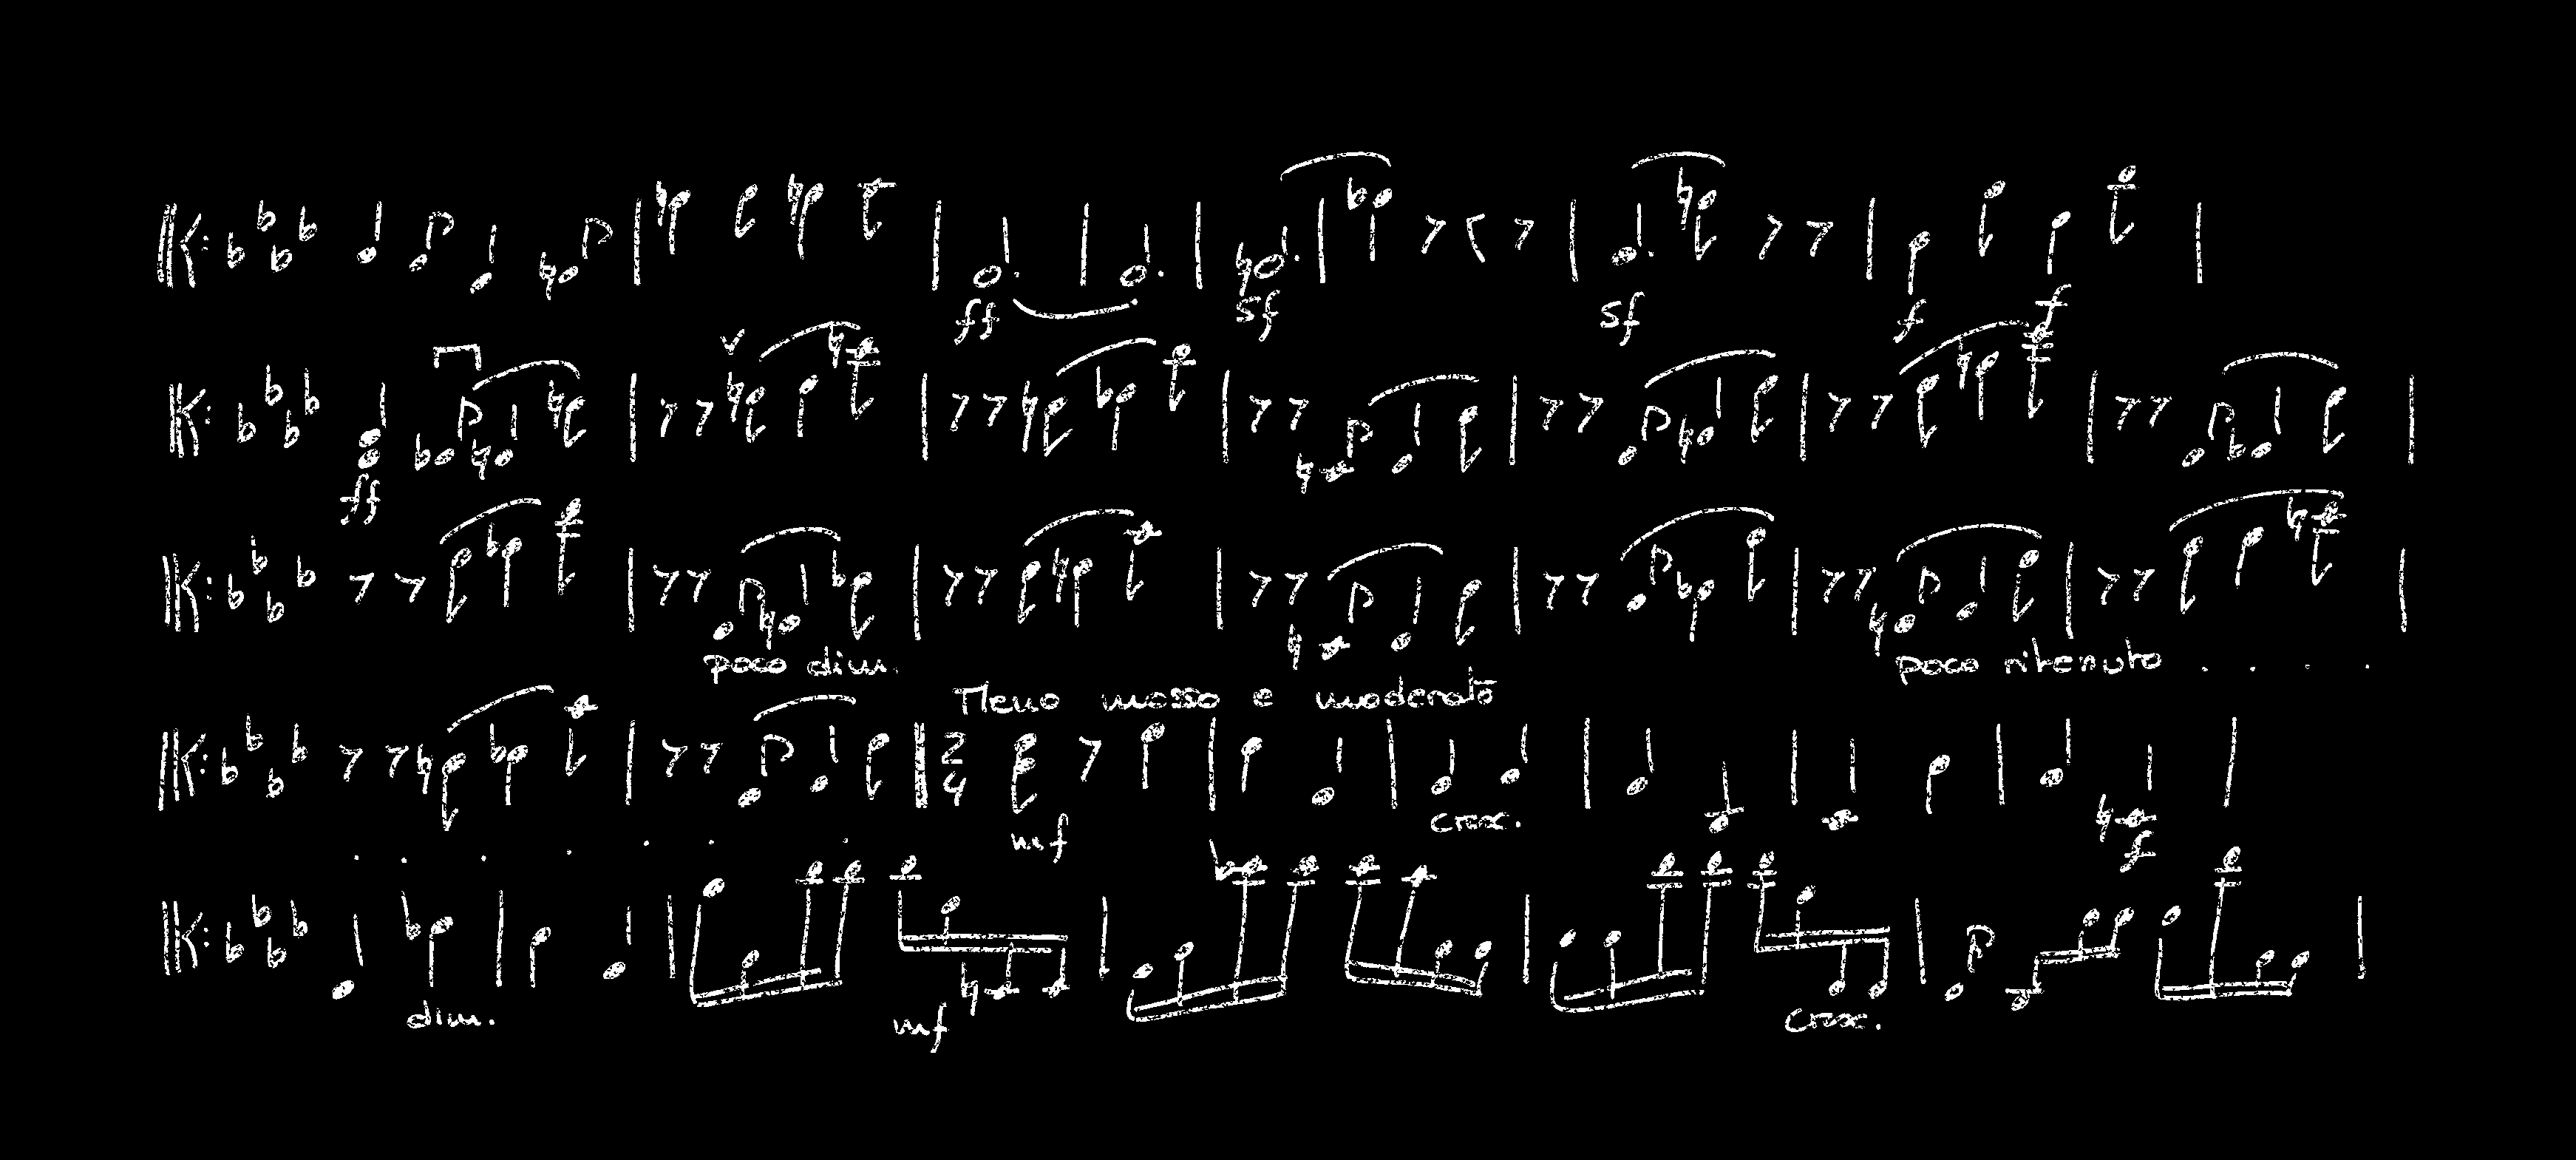 ff sf sf f f
ff
poco dim. poco ritenuto . . . .
Meno mosso e moderato
2 4
mf cresc. f
. . . . . . .
dim. mf cresc.